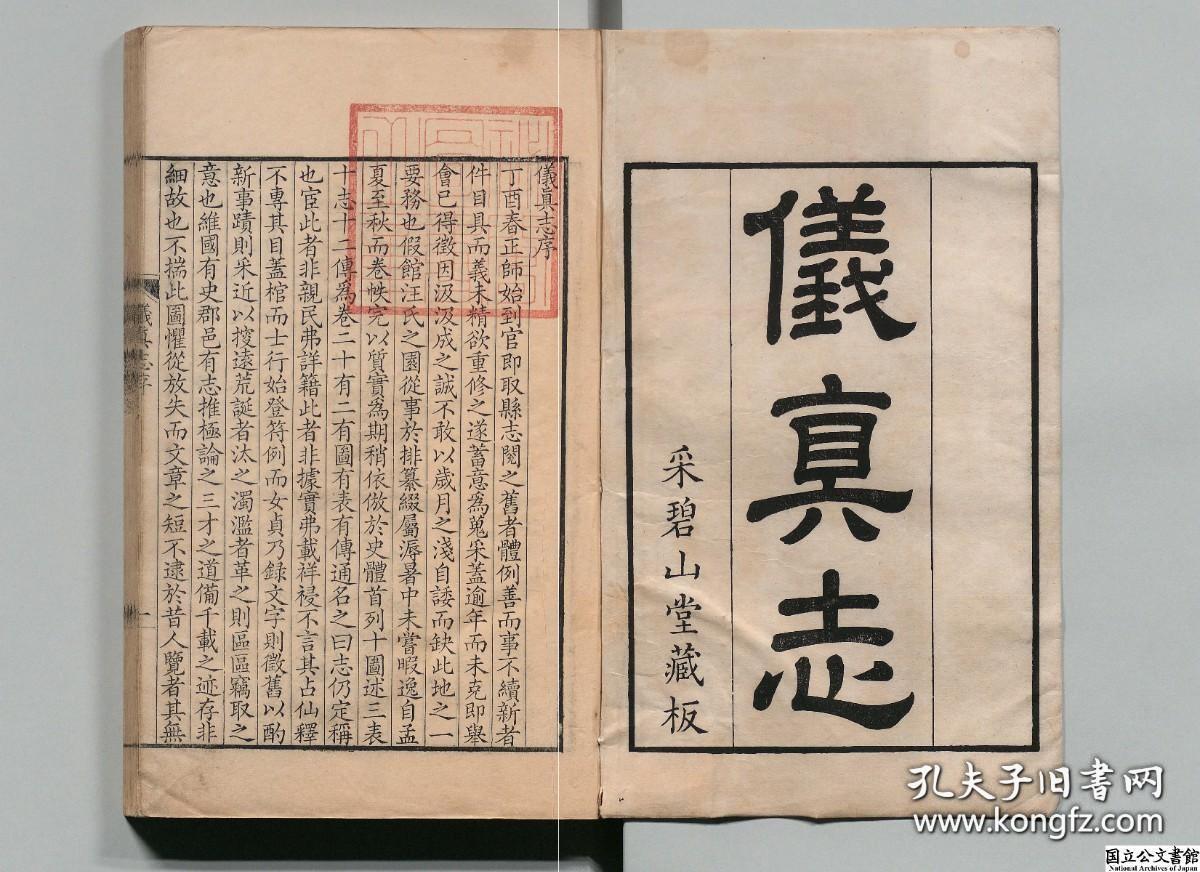 儀真志
采碧山堂藏板
儀真志序
丁酉春正師始到官即取縣志閱之舊者體例善而事不續新者
件目具而義未精欲重修之遂蓄意為蒐采蓋逾年而未克即舉
會已得徵因汲汲成之誠不敢以歲月之淺自諉而缺此地之一
要務也假館汪氏之園從事於排纂綴屬溽暑中未嘗暇逸自孟
夏至秋而卷帙完以質實為期稍依倣於史體首列十圖述三表
十志十二傳為卷二十有二有圖有表有傳通名之曰志仍定稱
也宦此者非親民弗詳籍此者非據實弗載祥祲不言其占仙釋
不專其目蓋棺而士行始登符例而女貞乃録文字則徵舊以酌
新事蹟則采近以搜遠荒誕者汰之濁濫者革之則區區竊取之
意也維國有史郡邑有志推極論之三才之道備千載之迹存非
細故也不揣此圖懼從放失而文章之短不逮於昔人覽者其無
儀真志序
一
孔夫子旧书网
www.kongfz.com
国立公文書館
National Archives of Japan